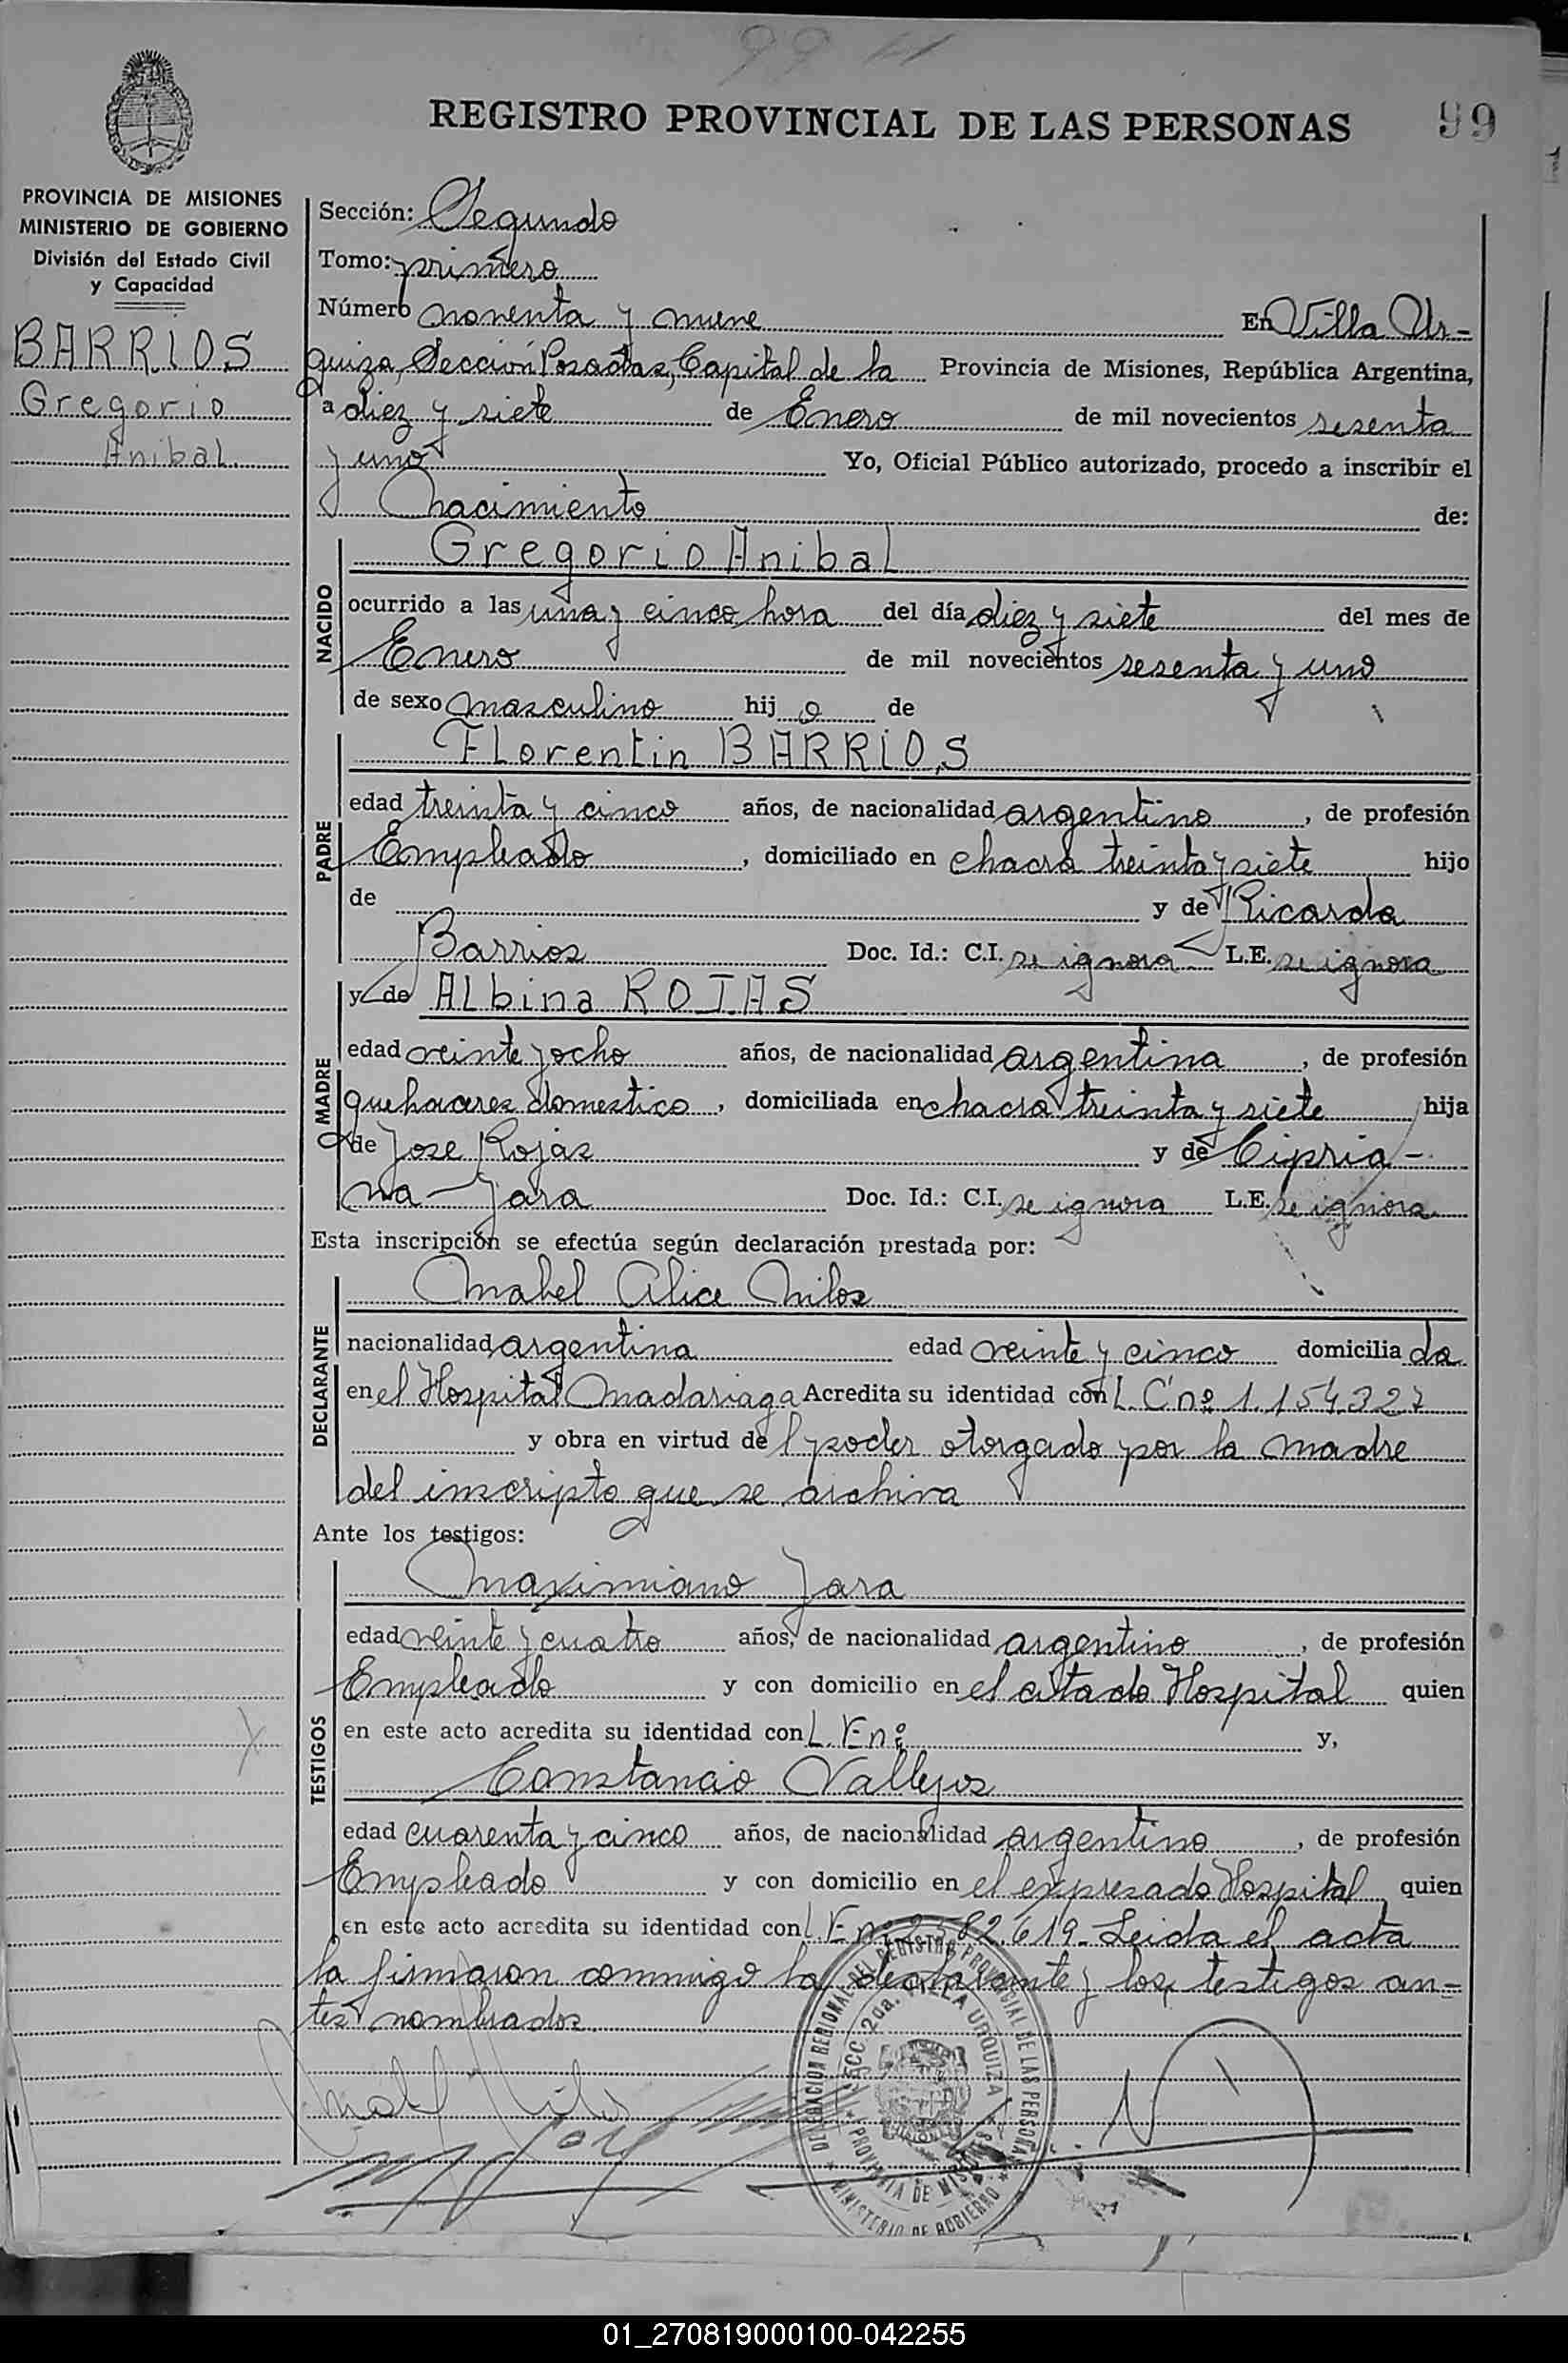 99
REGISTRO PROVINCIAL DE LAS PERSONAS
99
PROVINCIA DE MISIONES
MINISTERIO DE GOBIERNO
División del Estado Civil
y Capacidad
BARRIOS
Gregorio
Anibal.
Sección: Segundo
Tomo: primero
Número noventa y nueve En Villa Ur-
quiza, Sección Posadas, Capital de la Provincia de Misiones, República Argentina,
a diez y siete de Enero de mil novecientos sesenta
y uno Yo, Oficial Público autorizado, procedo a inscribir el
Nacimiento de:
NACIDO
Gregorio Anibal
ocurrido a las una y cinco hora del día diez y siete del mes de
Enero de mil novecientos sesenta y uno
de sexo masculino hij o de
PADRE
Florentin BARRIOS
edad treinta y cinco años, de nacionalidad argentino, de profesión
Empleado, domiciliado en chacra treinta y siete hijo
de y de Ricarda
Barrios Doc. Id.: C.I. se ignora L.E. se ignora
MADRE
y de Albina ROJAS
edad veinte y ocho años, de nacionalidad argentina, de profesión
quehaceres domestico, domiciliada en chacra treinta y siete hija
de Jose Rojas y de Cipria-
na Jara Doc. Id.: C.I. se ignora L.E. se ignora
Esta inscripción se efectúa según declaración prestada por:
DECLARANTE
Mabel Alice Milos
nacionalidad argentina edad veinte y cinco domicilia da
en el Hospital Madariaga Acredita su identidad con L. C nº 1.154.327
y obra en virtud de l poder otorgado por la madre
del inscripto que se archiva
Ante los testigos:
TESTIGOS
Maximiano Jara
edad veinte y cuatro años, de nacionalidad argentino, de profesión
Empleado y con domicilio en el citado Hospital quien
en este acto acredita su identidad con L. E nº y,
Constancio Vallejos
edad cuarenta y cinco años, de nacionalidad argentino, de profesión
Empleado y con domicilio en el expresado Hospital quien
en este acto acredita su identidad con L. E nº 2.582.619- Leida el acta
la firmaron conmigo la declarante y los testigos an-
tes nombrados.
DELEGACION REGIONAL DEL REGISTRO PROVINCIAL DE LAS PERSONAS
SECC 2da. VILLA URQUIZA
PROVINCIA DE MISIONES
MINISTERIO DE GOBIERNO
01_270819000100-042255